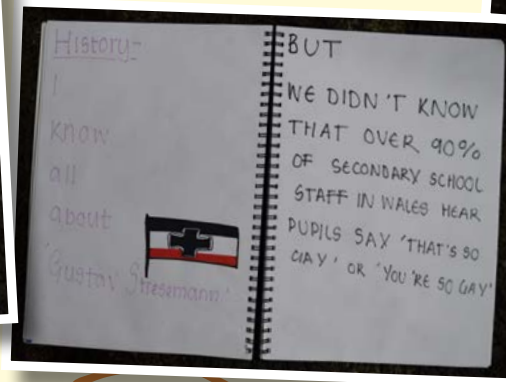 History-
I
know
all
about
'Gustav Stresemann'
BUT
WE DIDN'T KNOW
THAT OVER 90%
OF SECONDARY SCHOOL
STAFF IN WALES HEAR
PUPILS SAY 'THAT'S SO
GAY' OR 'YOU'RE SO GAY'